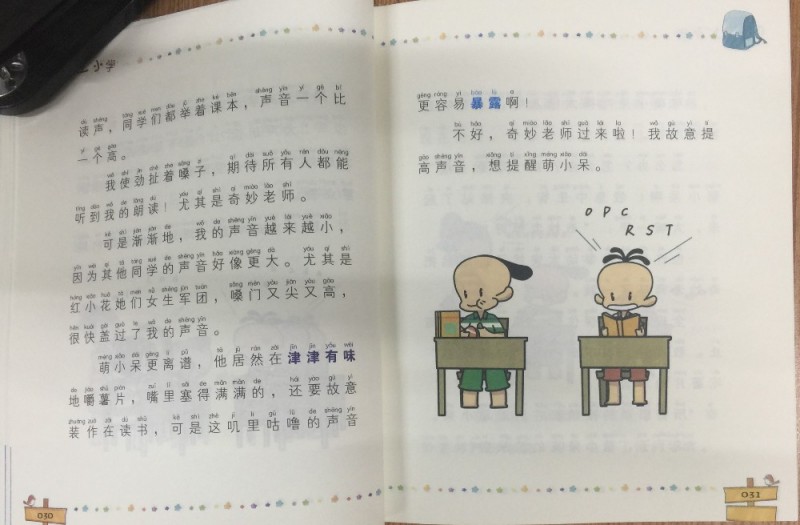 小学
读声，同学们都举着课本，声音一个比
一个高。
我使劲扯着嗓子，期待所有人都能
听到我的朗读！尤其是奇妙老师。
可是渐渐地，我的声音越来越小，
因为其他同学的声音好像更大。尤其是
红小花她们女生军团，嗓门又尖又高，
很快盖过了我的声音。
萌小呆更离谱，他居然在津津有味
地嚼薯片，嘴里塞得满满的，还要故意
装作在读书，可是这叽里咕噜的声音
030
更容易暴露啊！
不好，奇妙老师过来啦！我故意提
高声音，想提醒萌小呆。
O P C
R S T
031